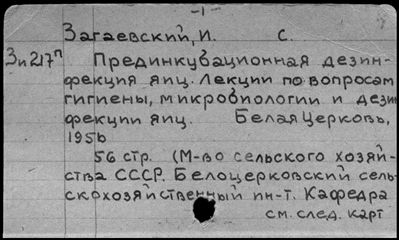 -1-
Загаевский, И. С.
Зи217п Прединкубационная дезин-
фекция яиц. Лекции по вопросам
гигиены, микробиологии и дезин
фекции яиц. Белая Церковь,
1956
56 стр. (М-во сельского хозяй-
ства СССР. Белоцерковский сель-
скохозяйственный ин-т. Кафедра
см. след. карт